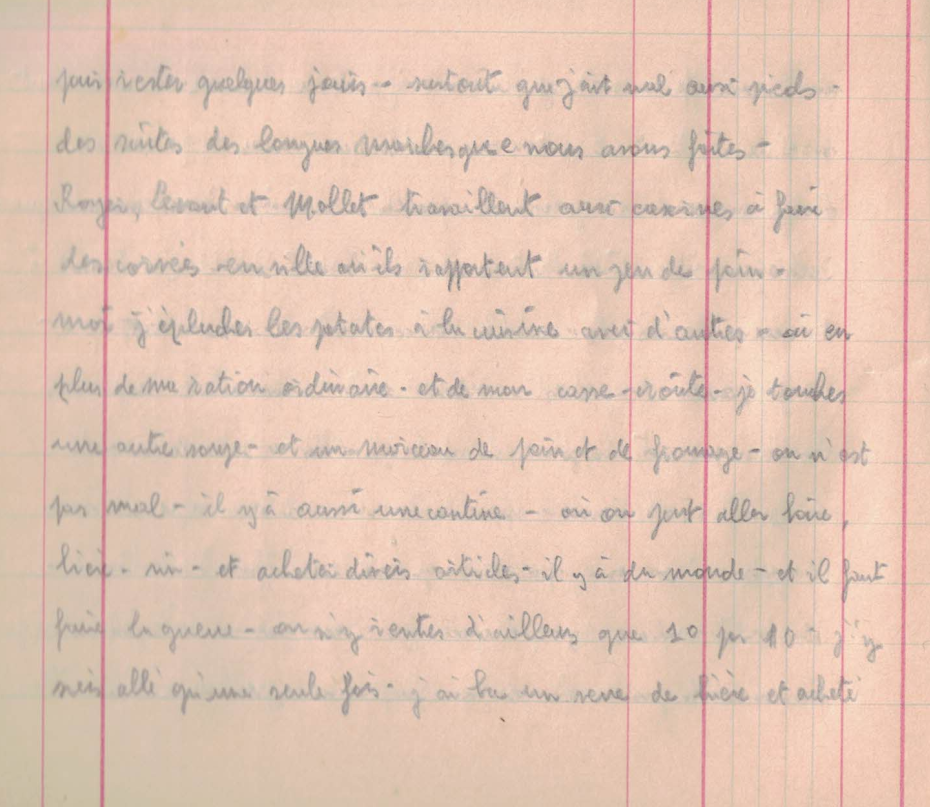 puis rester quelques jours - surtout que j'ait mal aux pieds -
des suites des longues marches que nous avons faites -
Royer, et Mollet travaillent aux casernes à faire
des corvées en ville où ils rapportent un peu de pain -
moi j'épluches les patates à la cuisine avec d'autres - où en
plus de ma ration ordinaire - et de mon casse-croûte - je touches
une autre soupe - et un morceau de pain et de fromage - on n'est
pas mal - il y à aussi une cantine - où on peut aller boire,
bière - vin - et acheter divers articles - il y à du monde - et il faut
faire la queue - on n'y rentres d'ailleurs que 10 par 10 - j'y
suis allé qu'une seule fois - j'ai bu un verre de bière et acheté